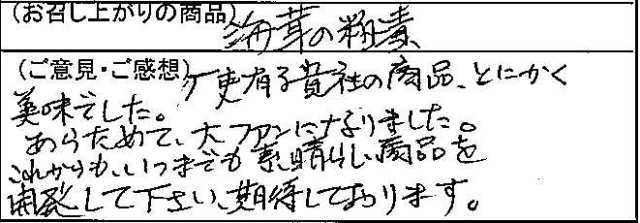 (お召し上がりの商品) 海茸の粕漬
(ご意見・ご感想) 今更乍ら貴社の商品、とにかく
美味でした。
あらためて、大ファンになりました。
これからも、いつまでも素晴らしい商品を
開発して下さい、期待しております。